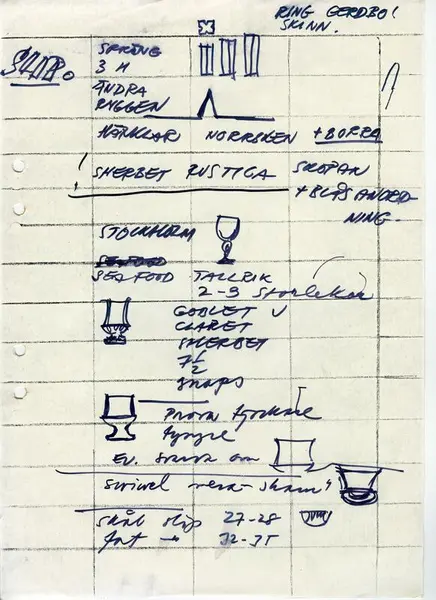 RING GERDBO!
SKINN.
SLIP.
SPRÄNG
3 H
ÄNDRA
RYGGEN
HÄNKLAR NORRSKEN + BORRA
! SHERBET RUSTICA SKOPAN
+ BLÅSANORD-
NING.
STOCKHOLM
SEAFOOD
SEAFOOD TALLRIK
2-3 Storlekar
GOBLET
CLARET
SHERBET
7 1/2
snaps
Prova tjockare
tyngre
EV.
Swivel
skål slip 27-28
fat 32-35